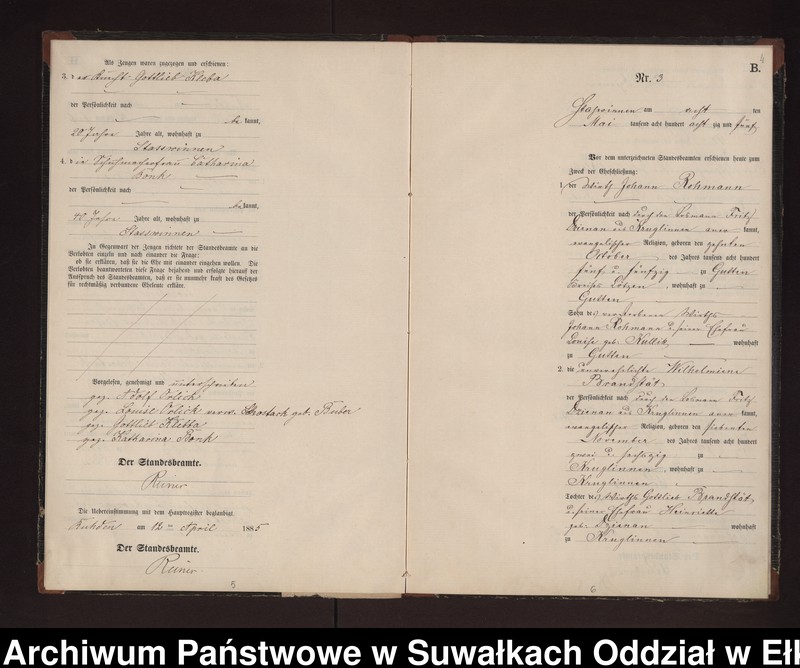 Als Zeugen waren zugezogen und erschienen:
3. der Knecht Gottlieb Kleba
der Persönlichkeit nach
be kannt,
20 Jahre Jahre alt, wohnhaft zu
Stasswinnen
4. die Schuhmacherfrau Catharina
Bonk
der Persönlichkeit nach
be kannt,
40 Jahre Jahre alt, wohnhaft zu
Stasswinnen
In Gegenwart der Zeugen richtete der Standesbeamte an die
Verlobten einzeln und nach einander die Frage:
ob sie erklären, daß sie die Ehe mit einander eingehen wollen. Die
Verlobten beantworteten diese Frage bejahend und erfolgte hierauf der
Ausspruch des Standesbeamten, daß er sie nunmehr kraft des Gesetzes
für rechtmäßig verbundene Eheleute erkläre.
Vorgelesen, genehmigt und unterschrieben
gez. Adolf
gez. Louise verw. geb.
gez. Gottlieb Klebba
gez. Katharina Bonk
Der Standesbeamte.
Reiner
Die Uebereinstimmung mit dem Hauptregister beglaubigt.
am 12ten April 1885
Der Standesbeamte.
Reiner
5
4
B.
Nr. 3
am acht ten
Mai tausend acht hundert acht zig und fünf
Vor dem unterzeichneten Standesbeamten erschienen heute zum
Zweck der Eheschließung:
1. der Wirth Johann Rohmann
der Persönlichkeit nach durch den Losmann Fritz
Dzienan aus Kruglinnen aner kannt,
evangelischer Religion, geboren den zehnten
October des Jahres tausend acht hundert
fünf u. fünfzig zu Gutten
Kreises Lötzen, wohnhaft zu
Gutten
Sohn des verstorbenen Wirths
Johann Rohmann u. seiner Ehefrau
Louise geb. Kullik wohnhaft
zu Gutten
2. die unverehelichte Wilhelmine
Brandstät
der Persönlichkeit nach durch den Losmann Fritz
Dzienan aus Kruglinnen aner kannt,
evangelischer Religion, geboren den siebenten
November des Jahres tausend acht hundert
zwei u. sechszig zu
Kruglinnen, wohnhaft zu
Kruglinnen
Tochter des Wirths Gottlieb Brandstät
u. seiner Ehefrau Heinriette
geb. Dzienan wohnhaft
zu Kruglinnen
6
Archiwum Państwowe w Suwałkach Oddział w Eł